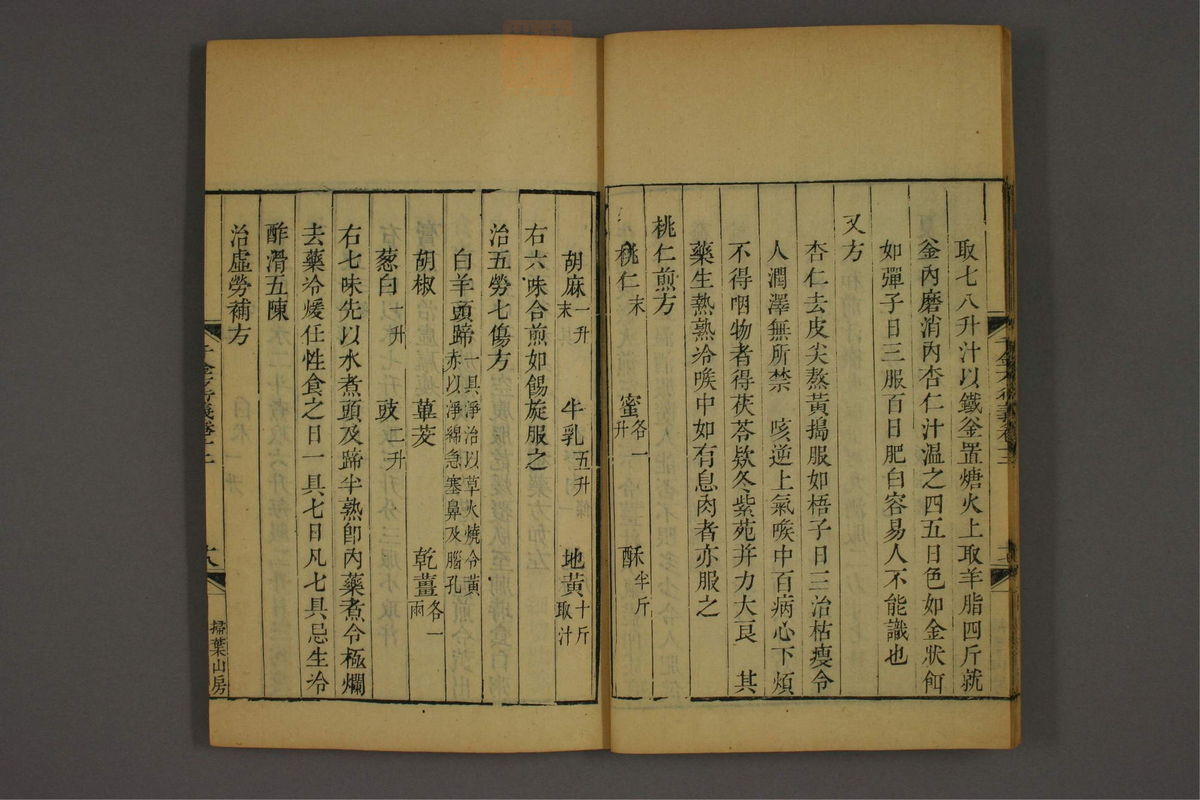 取七八升汁以鐵釜置煻火上取羊脂四斤就
釜內磨消內杏仁汁溫之四五日色如金狀餌
如彈子日三服百日肥白容易人不能識也
又方
杏仁去皮尖熬黃搗服如梧子日三治枯瘦令
人潤澤無所禁 咳逆上氣喉中百病心下煩
不得咽物者得茯苓欵冬紫苑并力大良 其
藥生熟熟冷喉中如有息肉者亦服之
桃仁煎方
桃仁末 蜜各一升 酥半斤
胡麻一升末 牛乳五升 地黃十斤取汁
右六味合煎如餳旋服之
治五勞七傷方
白羊頭蹄一具淨治以草火燒令黃赤以淨綿急塞鼻及腦孔
胡椒 蓽茇 乾薑各一兩
葱白一升 豉二升
右七味先以水煮頭及蹄半熟卽內藥煮令極爛
去藥冷煖任性食之日一具七日凡七具忌生冷
酢滑五陳
治虛勞補方
掃葉山房